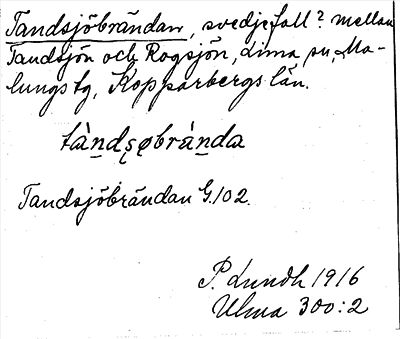 Tandsjöbrändan, svedjefall? mellan
Tandsjön och Rogsjön, Lima sn, Ma-
lungs tg, Kopparbergs län.
tàndsøbrànda
Tandsjöbrändan G.102.
P. Lundh 1916
Ulma 300:2